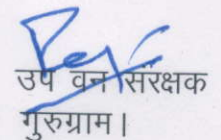 उप वन संरक्षक
गुरुग्राम।